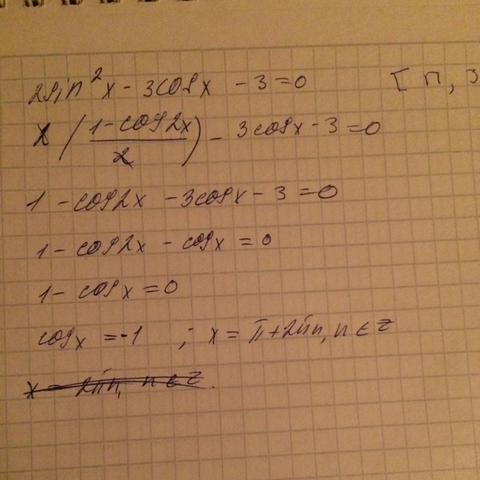 2sin²x - 3cosx - 3 = 0 [π, 3
2(1-cos2x/2) - 3cosx - 3 = 0
1 - cos2x - 3cosx - 3 = 0
1 - cos2x - cosx = 0
1 - cosx = 0
cosx = -1 ; x = π+2πn, n∈Z
x = 2πn, n∈Z.